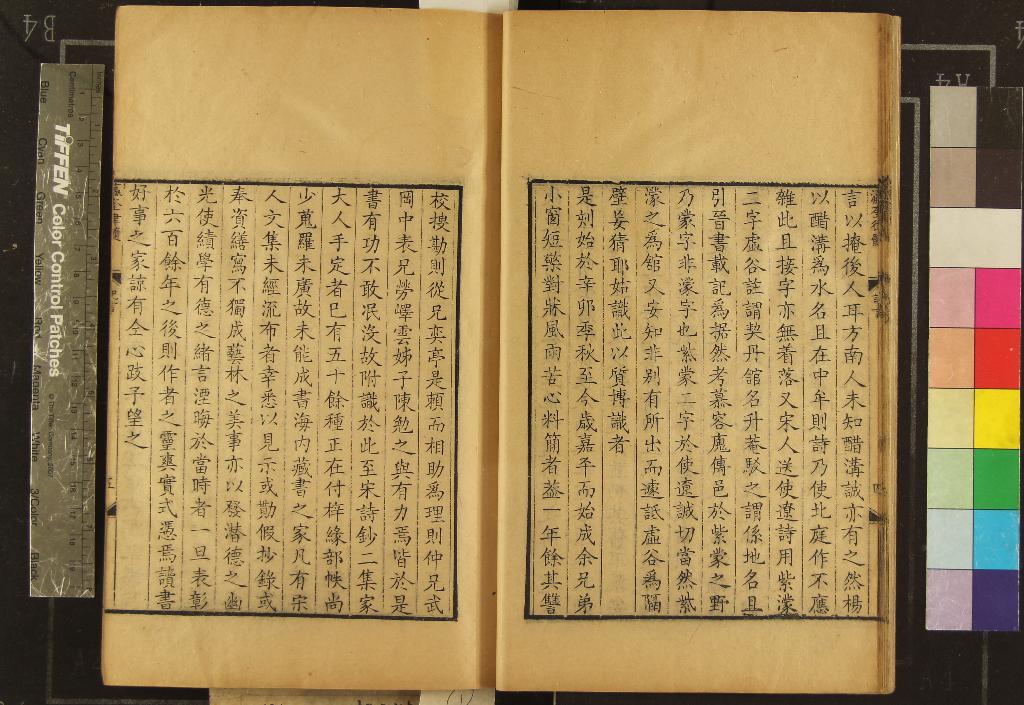 言以掩後人耳方南人未知醋溝誠亦有之然楊
以醋溝爲水名且在中牟則詩乃使北庭作不應
雜此且接字亦無着落又宋人送使遼詩用紫濛
二字虛谷註謂契丹館名升菴駁之謂係地名且
引晉書載記爲据然考慕容廆傳邑於紫蒙之野
乃蒙字非濛字也紫蒙二字於使遼誠切當然紫
濛之爲館又安知非别有所出而遽詆虛谷爲隔
壁妄猜耶姑識此以質博識者
是刻始於辛卯季秋至今歲嘉平而始成余兄弟
小窗短檠對牀風雨苦心料簡者葢一年餘其讐
校搜勘則從兄奕亭是頼而相助爲理則仲兄武
岡中表兄勞嶧雲姊子陳勉之與有力焉皆於是
書有功不敢冺没故附識於此至宋詩鈔二集家
大人手定者巳有五十餘種正在付梓緣部帙尚
少蒐羅未廣故未能成書海内藏書之家凡有宋
人文集未經流布者幸悉以見示或勷假抄錄或
奉資繕寫不獨成藝林之美事亦以發潛德之幽
光使績學有德之緒言湮晦於當時者一旦表彰
於六百餘年之後則作者之靈爽實式憑焉讀書
好事之家諒有全心跂予望之
B4
A4
Inches
Centimetres
TIFFEN Color Control Patches
© The Tiffen Company, 2007
Blue
Cyan
Green
Yellow
Red
Magenta
White
3/Color
Black